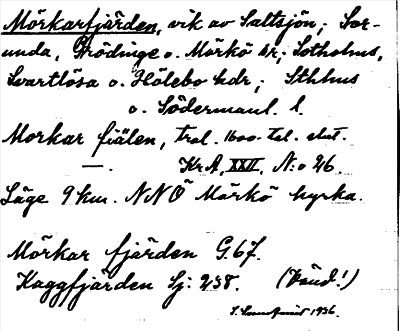 Mörkarfjärden, vik av Saltsjön; Sor-
unda, Grödinge o. Mörkö sr; Sotholms,
Svartlösa o. Hölebo hdr; Sthlms
o. Södermanl. l.
Morkar fiälen, trol. 1600-tal. slut.
—. KrA, XXII, N:o 46.
Läge 9 km. NNÖ Mörkö kyrka.
Mörkar fjärden G. 67.
Kaggfjärden Sj: 238. (känd!)
1936.